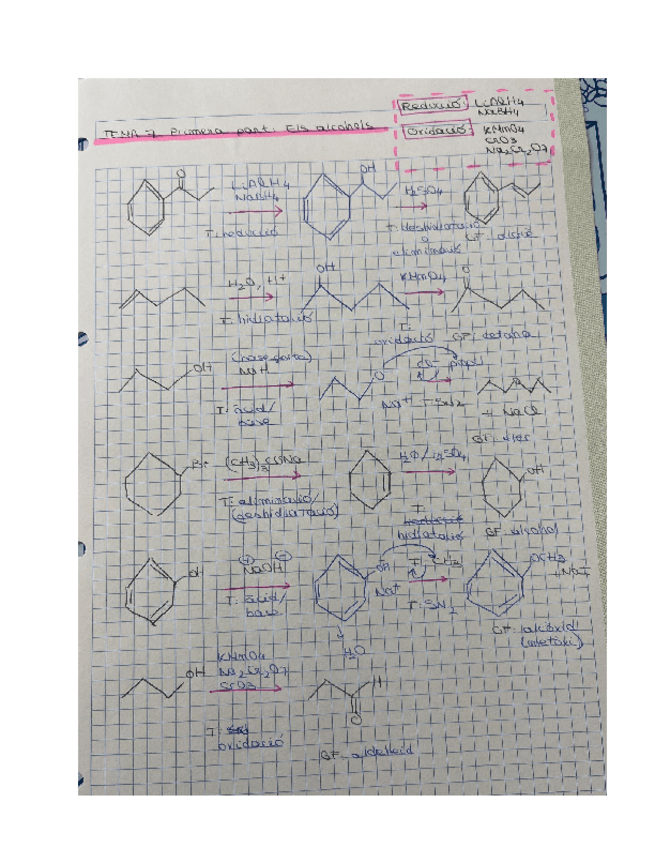 Reducció: LiAlH4
NaBH4
TEMA 7 Primera part: Els alcohols
Oxidació: KMnO4
CrO3
Na2Cr2O7
O
LiAlH4
NaBH4
T: reducció
OH
H2SO4
T: deshidratació
o
eliminació
H2O, H+
T: hidratació
OH
KMnO4
O
T:
oxidació
GF: cetona
OH
(base forta)
NaH
T: àcid/
base
O
Na+
T: SN2
+ NaCl
GF: èter
Br
(CH3)3CONa
T: eliminació/
(deshidratació)
H2O/H2SO4
T:
hidratació
OH
GF: alcohol
OH
NaOH
T: àcid/
base
Na+
H2O
I CH3
T: SN2
OCH3
+ NaI
GF: alcòxid/
(metoxi)
OH
KMnO4
Na2Cr2O7
CrO3
T:
oxidació
H
O
GF: aldehid